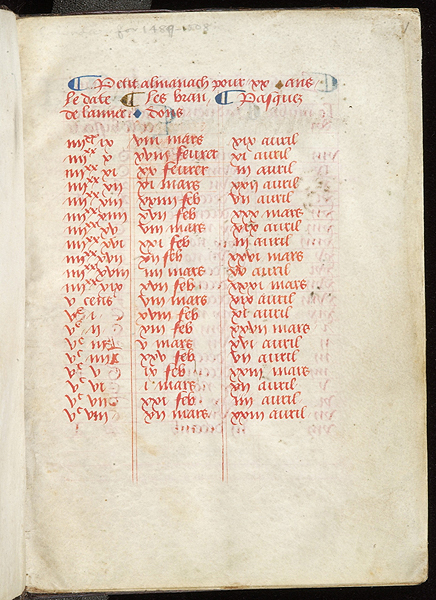 for 1489-1508.
Petit almanach pour xx ans
Le date Les bran Pasques
de lannee dons
iiiixx ix viii mars xix auril
iiiixx x xviii feurer xi auril
iiiixx xi xx feurer iii auril
iiiixx xii xi mars xxii auril
iiiixx xiii xxiiii feb vii auril
iiiixx xiiii xvii feb xxx mars
iiiixx xv viii mars xix auril
iiiixx xvi xxi feb iii auril
iiiixx xvii xii feb xxvi mars
iiiixx xviii iiii mars xv auril
iiiixx xix xvii feb xxxi mars
v cens viii mars xix auril
vc i xviii feb xi auril
vc ii xiii feb xxvii mars
vc iii v mars xvi auril
vc iiii xxv feb vii auril
vc v ix feb xxiii mars
vc vi i mars xii auril
vc vii xxi feb iiii auril
vc viii xii mars xxiii auril